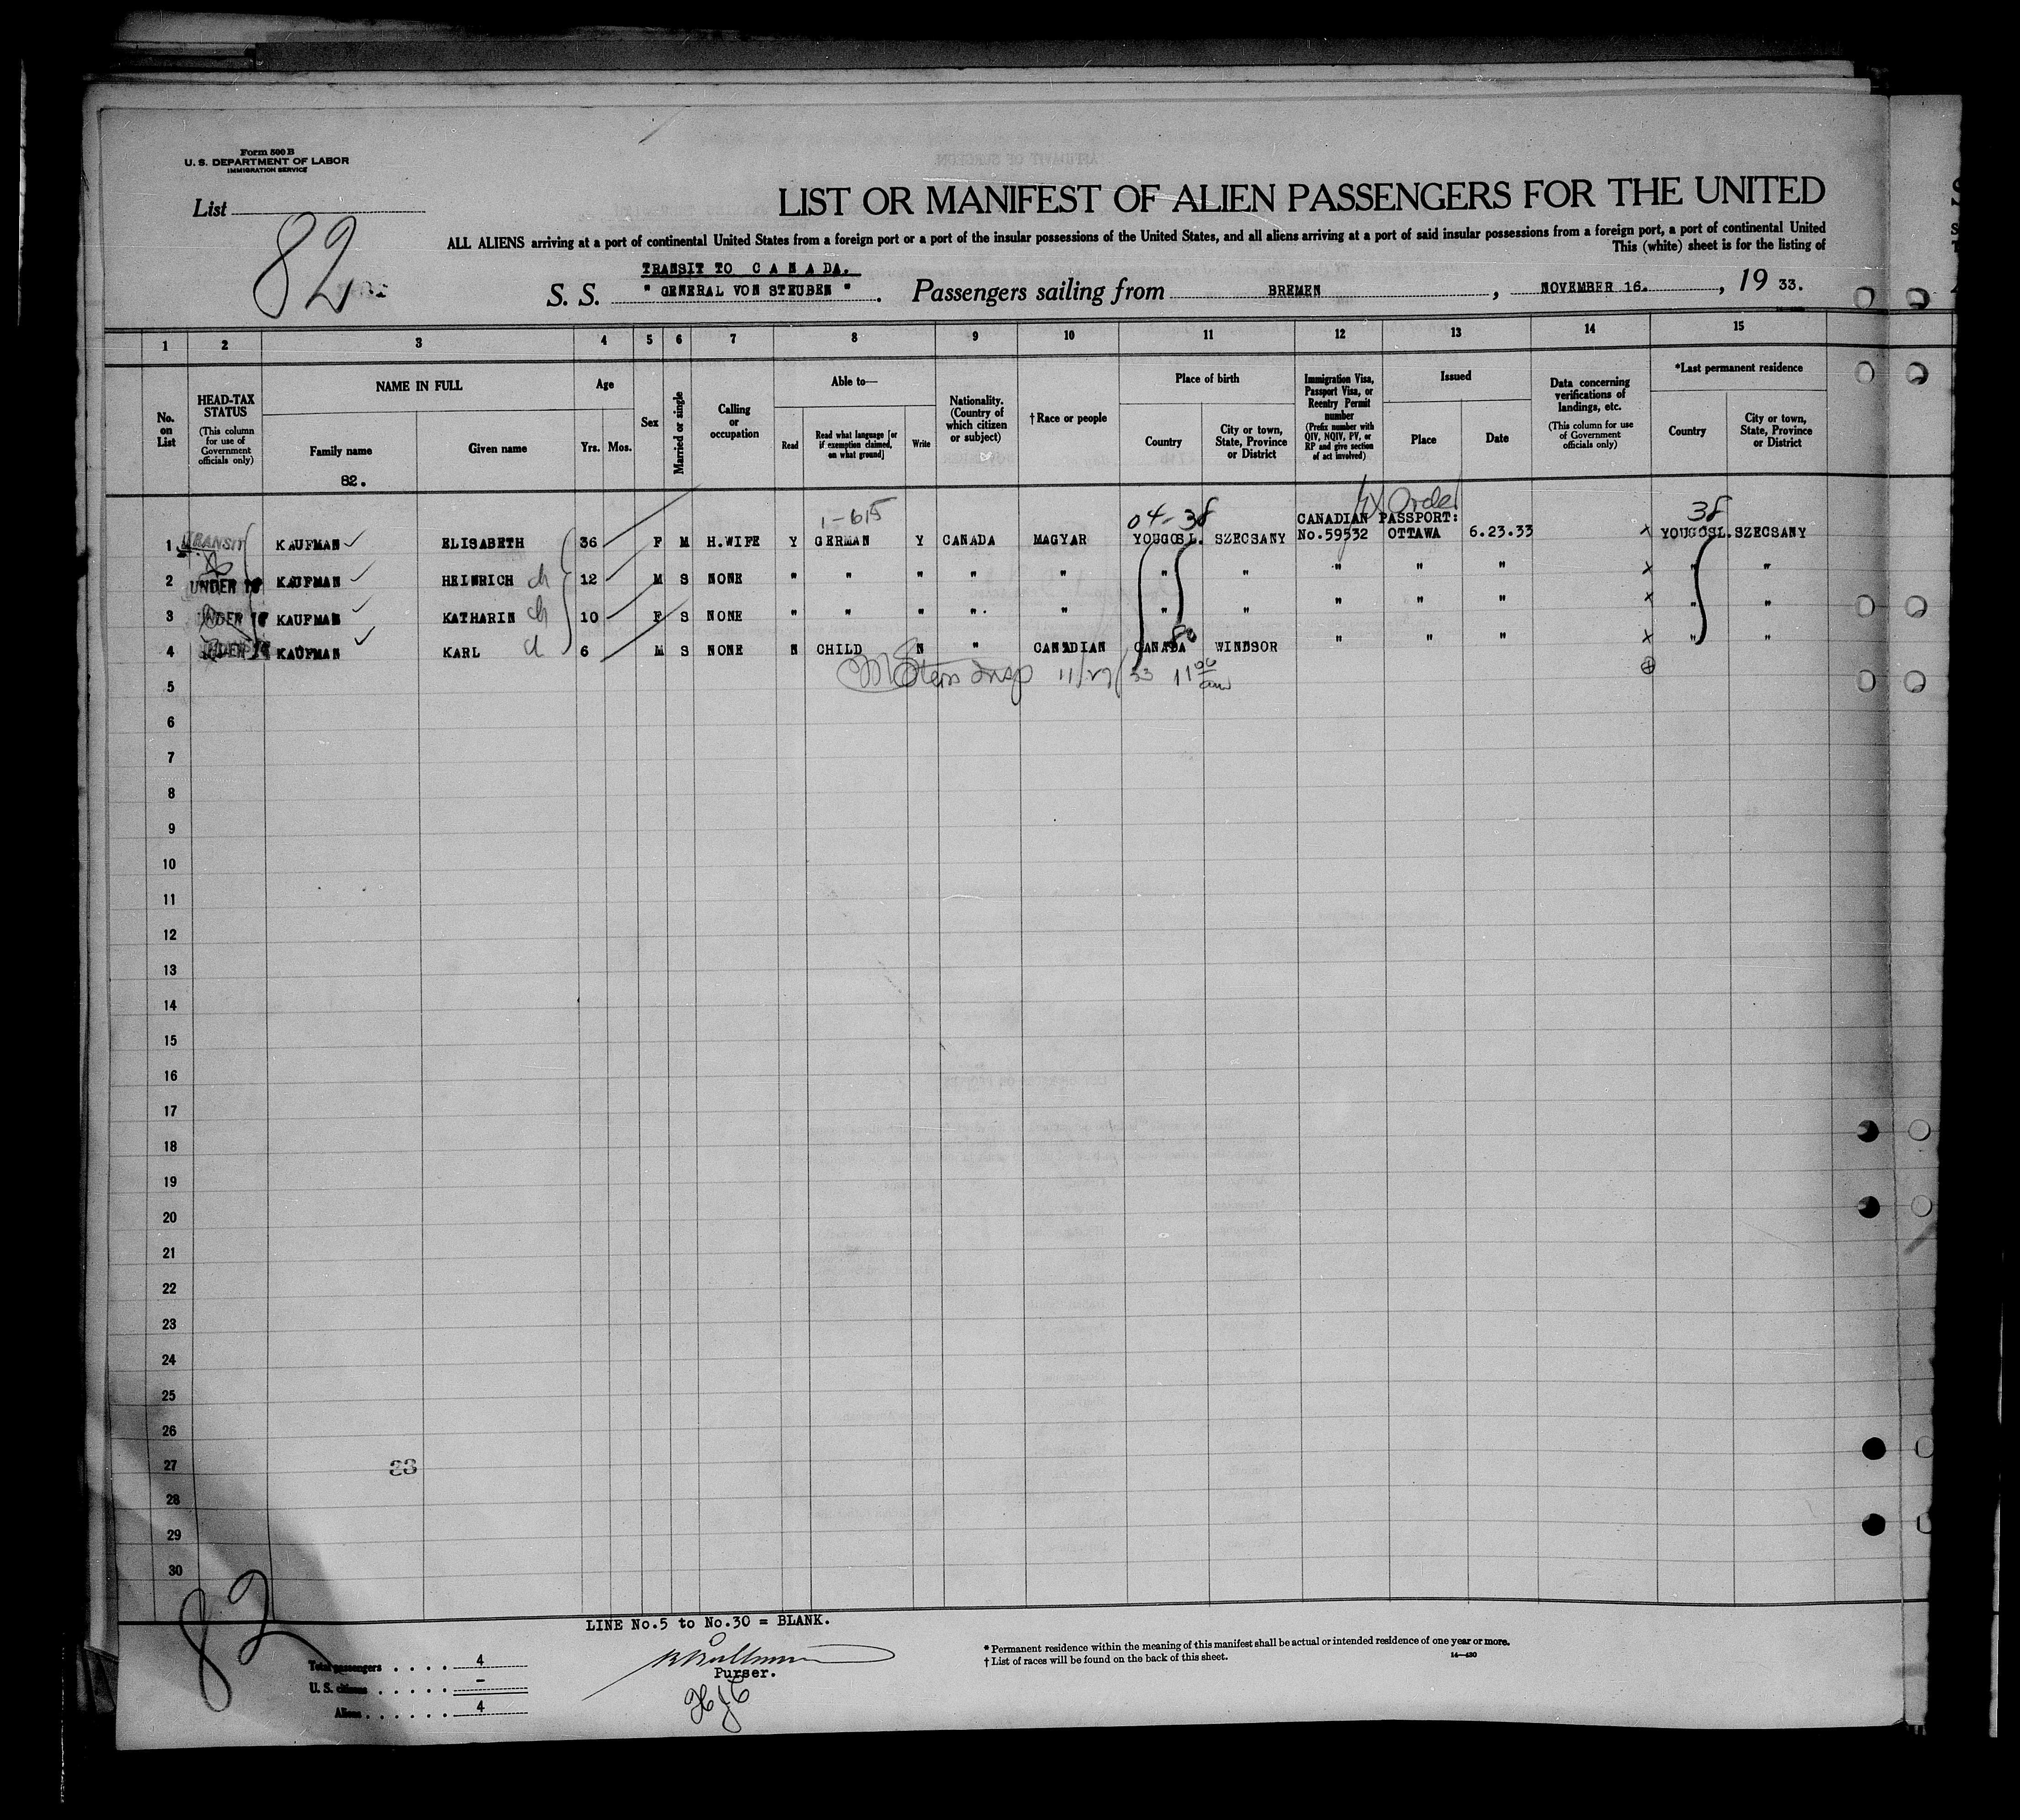 Form 500 B
U. S. DEPARTMENT OF LABOR
IMMIGRATION SERVICE
List
82
LIST OR MANIFEST OF ALIEN PASSENGERS FOR THE UNITED
ALL ALIENS arriving at a port of continental United States from a foreign port or a port of the insular possessions of the United States, and all aliens arriving at a port of said insular possessions from a foreign port, a port of continental United
This (white) sheet is for the listing of
TRANSIT TO C A N A DA.
S. S. " GENERAL VON STEUBEN ". Passengers sailing from BREMEN, NOVEMBER 16., 19 33.
1 2 3 4 5 6 7 8 9 10 11 12 13 14 15
No. on List
HEAD-TAX STATUS
(This column for use of Government officials only)
NAME IN FULL
Family name
82.
Given name
Age
Yrs. Mos.
Sex
Married or single
Calling or occupation
Able to—
Read
Read what language [or if exemption claimed, on what ground]
Write
Nationality. (Country of which citizen or subject)
† Race or people
Place of birth
Country
City or town, State, Province or District
Immigration Visa, Passport Visa, or Reentry Permit number
(Prefix number with QIV, NQIV, PV, or RP and give section of act involved)
Issued
Place
Date
Data concerning verifications of landings, etc.
(This column for use of Government officials only)
*Last permanent residence
Country
City or town, State, Province or District
1-615 04-38 Order 38
CANADIAN PASSPORT:
1 TRANSIT KAUFMAN ELISABETH 36 F M H.WIFE Y GERMAN Y CANADA MAGYAR YOUGOSL. SZECSANY No.59532 OTTAWA 6.23.33 x YOUGOSL. SZECSANY
2 UNDER 16 KAUFMAN HEINRICH ch 12 M S NONE " " " " " " " " " " x " "
3 UNDER 16 KAUFMAN KATHARIN ch 10 F S NONE " " " " " " " " " " x " "
4 UNDER 16 KAUFMAN KARL ch 6 M S NONE N CHILD N " CANADIAN CANADA 80 WINDSOR " " " x " "
Stern Insp 11/29/33 11 00 am
5
6
7
8
9
10
11
12
13
14
15
16
17
18
19
20
21
22
23
24
25
26
27
33
28
29
30
82
LINE No.5 to No.30 = BLANK.
Total passengers . . . . 4
U. S. citizens . . . . . . –
Aliens . . . . . . 4
Purser.
* Permanent residence within the meaning of this manifest shall be actual or intended residence of one year or more.
† List of races will be found on the back of this sheet.
14—430